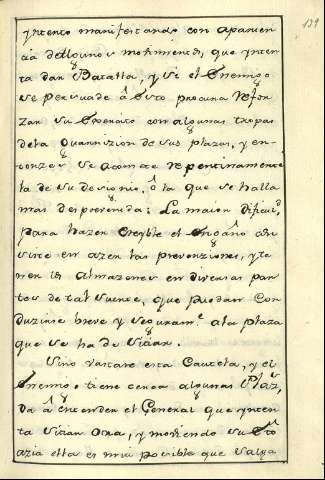 139
yntento manifestando con aparien
cia de algunos mobimientos, que ynten
ta dar Batalla, y si el Enemigo
se persuade â Esto procura Refor
zar su Exercito con algunas tropas
de la Guarnizion de sus plazas, y en-
tonzes se acomete Repentinamente
la de su desionio, ô la que se halla
mas desprevenida: La maior dificul.d
para hazer Creyble el Engaño con
siste en azer las prevenziones, y te
ner los Almazenes en diversas par
tes de tal suerte, que puedan Con
duzirse breve y seguram.te a la plaza
que se ha de Sitiar.
Sino vastare esta Cautela, y el
Enemigo tiene cerca algunas Plaz.s,
da â entender el General que ynten
ta sitiar Otra, y mobiendo su Ex.to
azia ella es mui posible que Salga